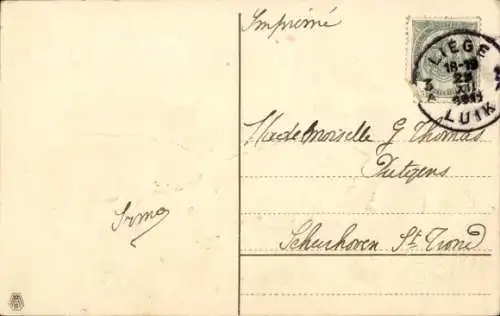 Imprimé
LIÉGE
18-19
23
XII
1911
LUIK
Mademoiselle G Thomas
Putzeys
Irma
Schurhoven St. Trond